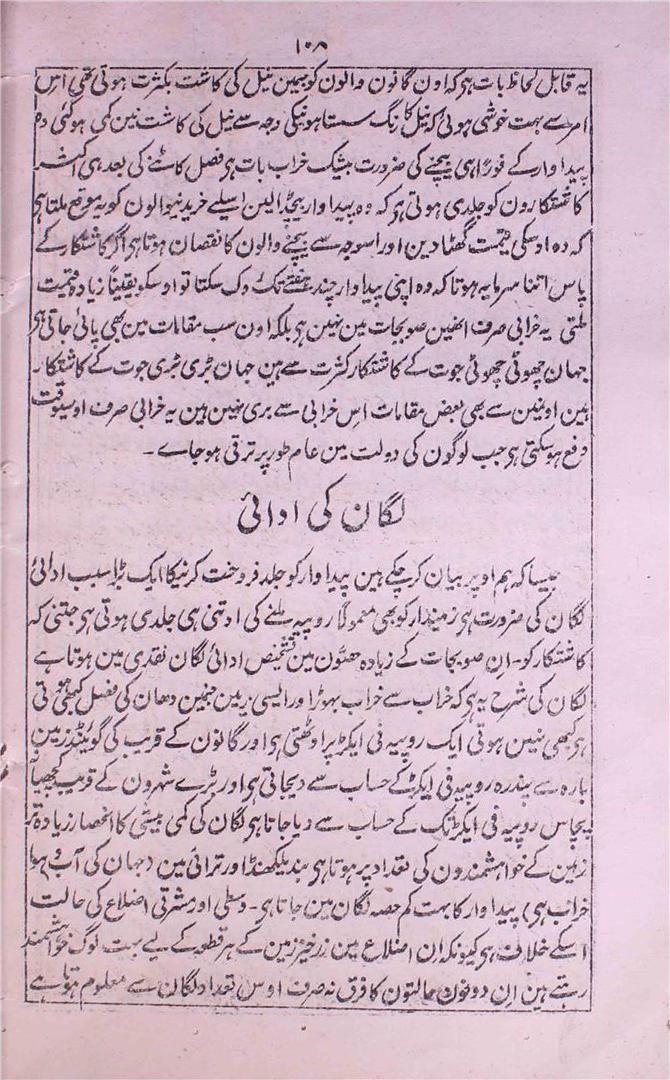 ۱۰۸
یہ قابل لحاظ بات ہی کہ اون گانون والون کو جہین نیل کی کاشت بکثرت ہوتی تھی اس
امر سے بہت خوشی ہوئی کہ نیل کا رنگ سستا ہونیکی وجہ سے نیل کی کاشت مین کمی ہو گئی
پیداوار کے فوراً ہی بیچنے کی ضرورت بیشک خراب بات ہی فصل کاٹنے کی بعد ہی اکثر
کاشتکارون کو جلدی ہوتی ہی کہ وہ پیداوار بیچڈالین اسلیے خریدنیوالون کو یہ موقع ملتا ہی
کہ وہ اوسکی قیمت گھٹا دین اور اسوجہ سے بیچنے والون کا نقصان ہوتا ہی اگر کاشتکار کے
پاس اتنا سرمایہ ہوتا کہ وہ اپنی پیداوار چند ہفتے تک روک سکتا تو اوسکو یقیناً زیادہ قیمت
ملتی یہ خرابی صرف انھین صوبجات مین نہین ہی بلکہ اون سب مقامات مین بھی پائی جاتی ہی
جہان چھوٹی چھوٹی جوت کے کاشتکار کثرت سے ہین جہان بڑی بڑی جوت کے کاشتکار
ہین اونین سے بھی بعض مقامات اس خرابی سے بری نہین ہین یہ خرابی صرف اوسیوقت
دفع ہو سکتی ہی جب لوگون کی دولت مین عام طور پر ترقی ہو جاے ۔
لگان کی ادائی
جیسا کہ ہم اوپر بیان کر چکے ہین پیداوار کو جلد فروخت کرنیکا ایک بڑا سبب ادائی
لگان کی ضرورت ہی زمیندار کو بھی معمولاً روپیہ ملنے کی اوتنی ہی جلدی ہوتی ہی جتنی کہ
کاشتکار کو ۔ ان صوبجات کے زیادہ حصّون مین تشخیص ادائی لگان نقدی مین ہوتا ہے
لگان کی شرح یہ ہی کہ خراب سے خراب بہوڑ اور ایسی زمین جہین دھان کی فصل کبھی ہوتی
ہی کبھی نہین ہوتی ایک روپیہ فی ایکڑ پر اوٹھتی ہی اور گانون کے قریب کی گوئنڈ زمین
بارہ سے پندرہ روپیہ فی ایکڑ کے حساب سے دیجاتی ہی اور بڑے شہرون کے قریب کچھیانہ
پچاس روپیہ فی ایکڑ تک کے حساب سے دیا جاتا ہی لگان کی کمی بیشی کا انحصار زیادہ تر
زمین کے خواہشمندون کی تعداد پر ہوتا ہی بندیلکھنڈ اور ترائی مین (جہان کی آب و ہوا
خراب ہی) پیداوار کا بہت کم حصہ لگان مین جاتا ہی ۔ وسطی اور مشرقی اضلاع کی حالت
اسکے خلاف ہی کیونکہ ان اضلاع مین زرخیز زمین کے ہر قطعہ کے لیے بہت لوگ خواہشمند
رہتے ہین ان دونون حالتون کا فرق نہ صرف اوس تعداد لگان سے معلوم ہوتا ہے